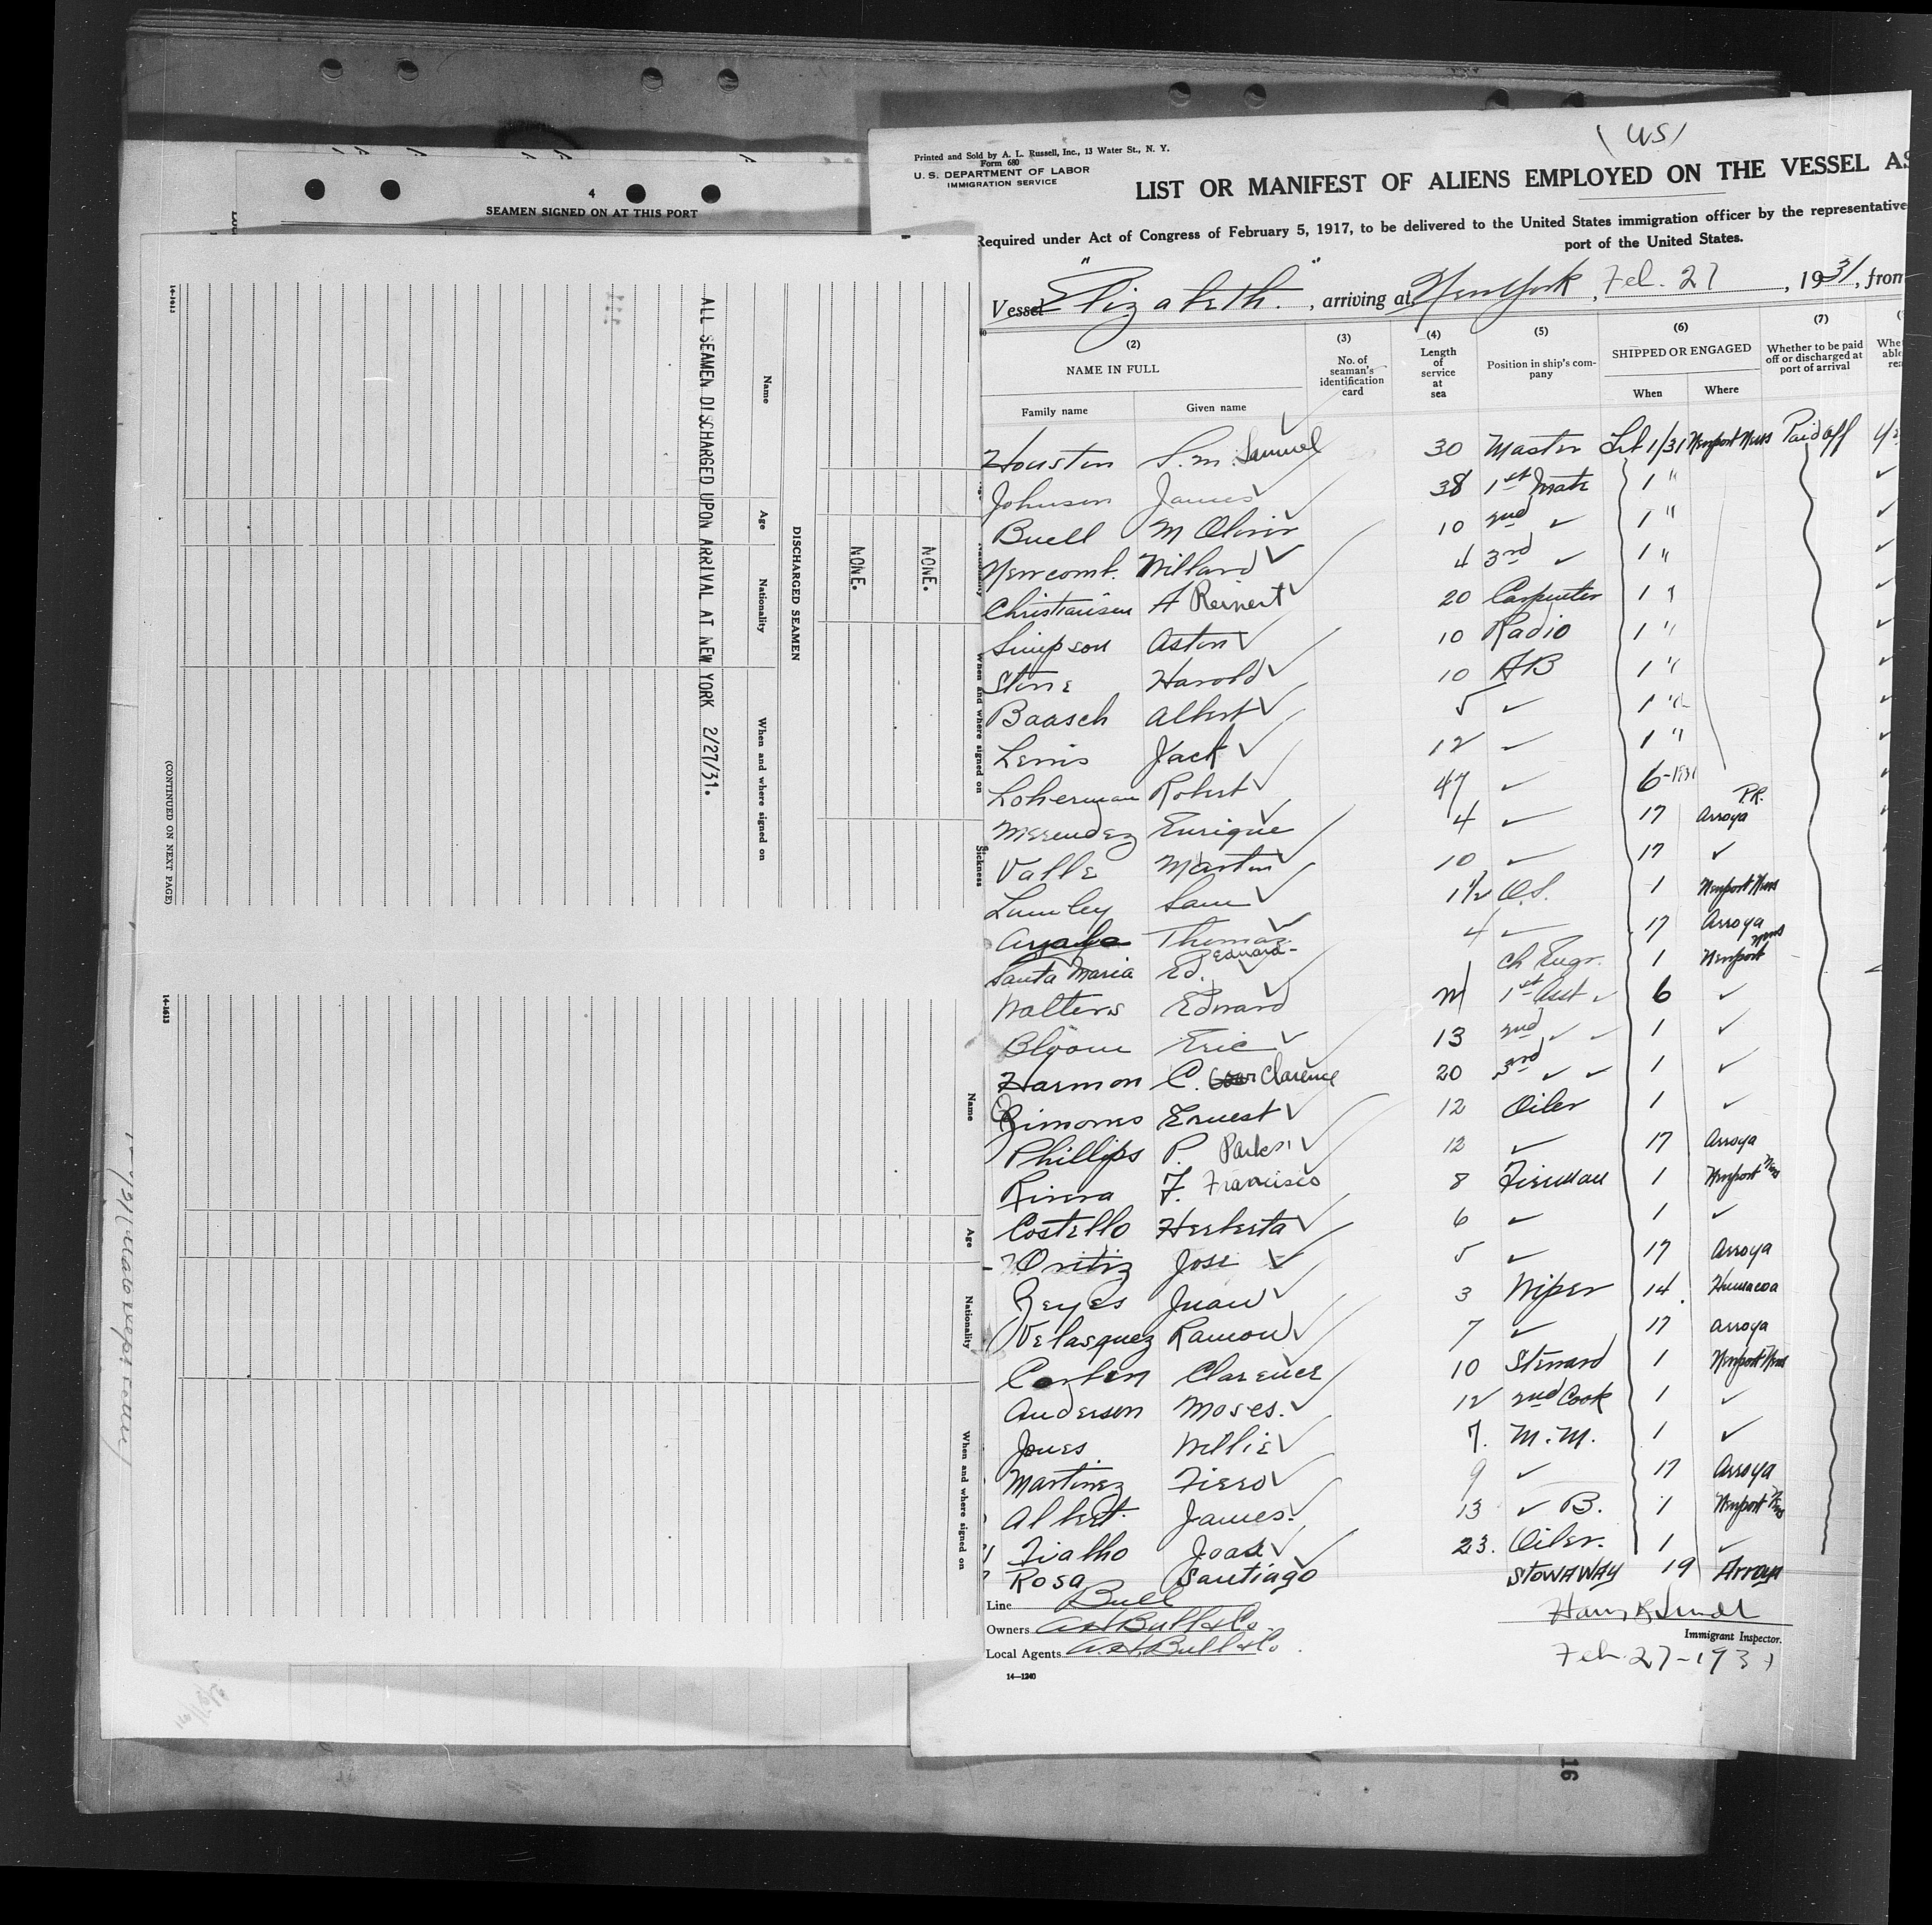 4
SEAMEN SIGNED ON AT THIS PORT
14-1613
Name
Age
Nationality
When and where signed on
ALL SEAMEN DISCHARGED UPON ARRIVAL AT NEW YORK 2/27/31.
DISCHARGED SEAMEN
NONE.
NONE.
When and where signed on
Sickness
(CONTINUED ON NEXT PAGE)
14-1613
Name
Age
Nationality
When and where signed on
(US)
Printed and Sold by A. L. Russell, Inc., 13 Water St., N. Y.
Form 680
U. S. DEPARTMENT OF LABOR
IMMIGRATION SERVICE
LIST OR MANIFEST OF ALIENS EMPLOYED ON THE VESSEL AS
Required under Act of Congress of February 5, 1917, to be delivered to the United States immigration officer by the representative
port of the United States.
Vessel "Elizabeth.", arriving at New York, Feb. 27, 1931, from
(2) (3) (4) (5) (6) (7)
NAME IN FULL
Family name Given name
No. of seaman's identification card
Length of service at sea
Position in ship's company
SHIPPED OR ENGAGED
When Where
Whether to be paid off or discharged at port of arrival
Houston S. M. Samuel 30 Master 1/31 Newport News Paid off
Johnson James 38 1st Mate 1 "
Buell M Oliver 10 2nd ✓ 1 "
Newcomb. Willard 4 3rd ✓ 1 "
Christiansen A Reinert 20 Carpenter 1 "
Simpson Aston 10 Radio 1 "
Stone Harold 10 AB 1 "
Baasch Albert 5 ✓ 1 "
Lewis Jack 12 ✓ 1 "
Loherman Robert 47 ✓ 6-1931
Merendez Enrique 4 ✓ 17 Arroya P.R.
Valle Martin 10 ✓ 17 ✓
Lumley Sam 1 1/2 O.S. 1 Newport News
Ayala Thomas 4 ✓ 17 Arroya
Santa Maria Ed. Edward- Ch Engr. 1 Newport News
Walters Edward 1st Asst ✓ 6 ✓
Bloom Eric 13 2nd ✓ ✓ 1 ✓
Harmon C. Clarence 20 3rd ✓ ✓ 1 ✓
Simons Ernest 12 Oiler 1 ✓
Phillips P. Parker 12 ✓ 17 Arroya
Rivera F. Francisco 8 Fireman 1 Newport News
Costello Herberta 6 ✓ 1 ✓
Oritiz Jose 5 ✓ 17 Arroya
Reyes Juan 3 Wiper 14. Humacoa
Velasquez Ramon 7 ✓ 17 Arroya
Corbin Clarence 10 Steward 1 Newport News
Anderson Moses. 12 2nd Cook 1 ✓
Jones Willie 7. M.M. 1 ✓
Martinez Fiero 9 ✓ 17 Arroya
Albert James. 13 ✓ B. 1 Newport News
Fialho Joao 23. Oiler. 1 ✓
Rosa Santiago STOWAWAY 19 Arroya
Line Bull
Owners A. H. Bull & Co.
Local Agents A. H. Bull & Co.
Immigrant Inspector.
Feb. 27-1931
14-1240
16